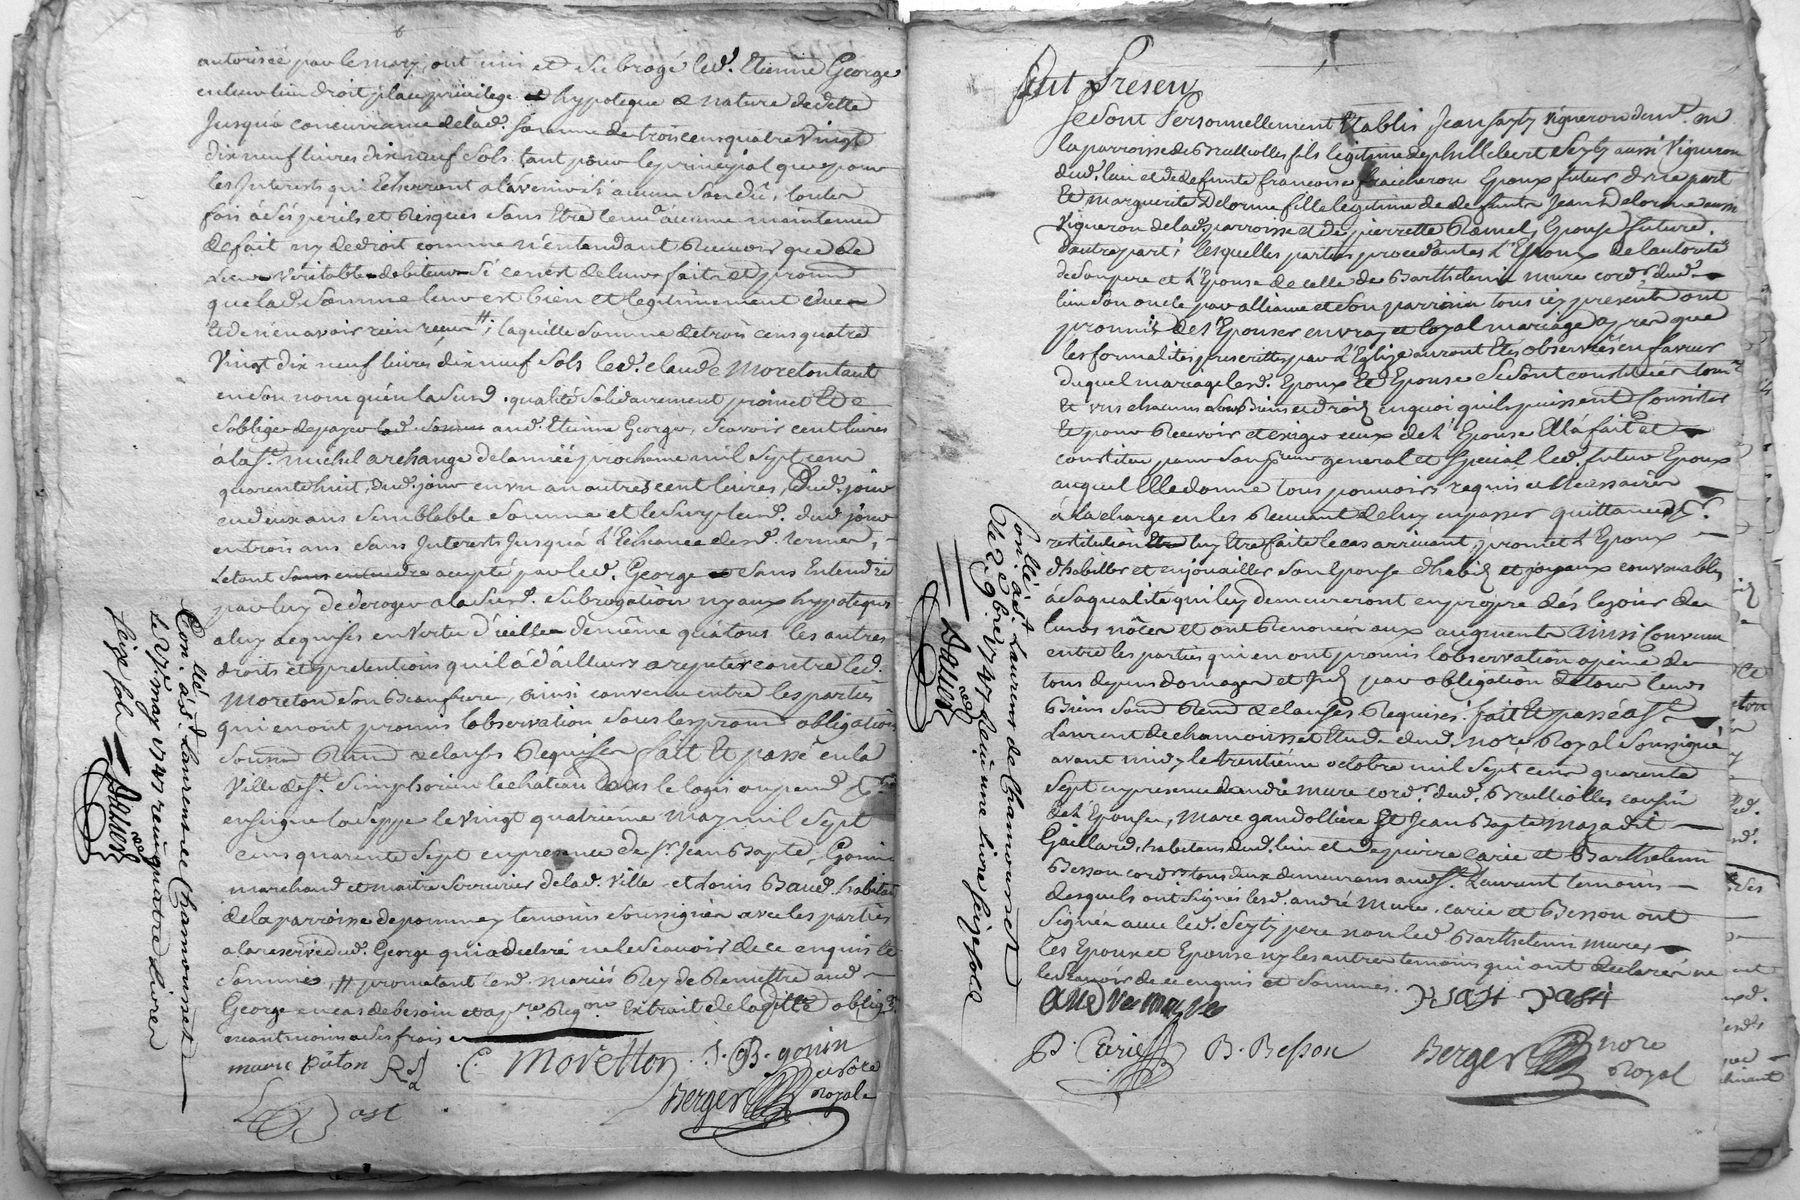 autorisée par le mary, ont mis et subrogé led. Etienne George
en leur lieu droit place privilege et hypoteque & nature de dette
Jusqu'a concurrance de lad. Somme de trois cens quatre Vingt
dix neuf livres dix neuf sols tant pour le principal que pour
les Interests qui Echerront a l'avenir si aucun sont dû, toutes
fois à ses perils et Risques sans Etre tenu a aucune maintenue
de fait ny de droit comme n'entendant Recevoir que de
veritable debiteur si ce n'est de leurs faits et promet
que lad. Somme leur est bien et legitimement düe
et de n'en avoir rien receu #; laquelle somme de trois cens quatre
Vingt dix neuf livres dix neuf sols led. claude Moreton tant
en son nom qu'en la susd. qualité solidairement promet Et
s'oblige de payer aud. Etienne George, scavoir cent livres
à la St. michel archange de l'année prochaine mil sept cens
quarente huit, dud. jour en un an autres cent livres, Dud. jour
en deux ans semblable somme et le surplus dud. jour
en trois ans sans Interests Jusqu'a l'Echeance desd. termes,
Le tout accepté par led. George sans Entendre
par luy deroger a la susd. subrogation ny aux hypoteques
a luy acquises en vertu d'icelle de même qu'a tous les autres
droits et pretentions qu'il a d'ailleurs a repeter contre led.
Moreton son Beaufrere, ainsi convenu entre les parties
qui en ont promis l'observation sous les obligations
soum. Renon. & clauses Requises fait Et passé en la
Ville de St. Simphorien le chateau dans le logis ou prend
enseigne le vingt quatrieme may mil sept
cens quarente sept en presence de Sr. Jean Bapte. Gonin
marchand et maitre serrurier de lad. Ville et Louis Baud habitant
de la parroisse de pommey temoins soussignés avec les parties
a la reserve dud. George qui a declaré ne le scavoir de ce enquis et
sommé, # promettant lesd. mariés Rey de Remettre aud.
George en cas de besoin et a pre. Reqon. Extrait de la obligon.
a ses frais
marie pâton C. Moretton J. B. gonin
Berger nore Royal
Con.llé à St. Laurent de Chamousset
le 27e may 1747 reçu quatre livres
seize sols
Dauer
Fut Presen
Se sont Personnellement Etablis Jean Seyty vigneron demt. en
la parroisse de Brulliolles fils legitime de phillebert Seyty aussi Vigneron
dud. lieu et de defunte francoise fraccheron Epoux futur d'une part
Et marguerite Delorme fille legitime de defunts Jean Delorme aussi
vigneron de lad. parroisse et de pierrette Ramel, Epouse future
d'autre part; lesquelles parties procedantes L'Epoux de l'autorité
de son pere et L'Epouse de celle de Barthelemi mure cordr. dud.
lieu son oncle par alliance et son parrain tous icy presents ont
promis de s'Epouser en vray et loyal mariage apres que
les formalités prescrittes par L'Eglize auront Eté observées en faveur
duquel mariage lesd. Epoux Et Epouse se sont constitués tous
Et uns chacuns leurs Biens et droits en quoi qu'ils puissent Consister
Et pour Recevoir et exiger ceux de L'Epouse Elle a fait et
constitué pour son procureur general et special led. futur Epoux
auquel Elle donne tous pouvoirs requis et Necessaires
à la charge en les Recevant de luy en passer quittance pr.
restitution luy Etre faite le cas arrivant, promet L'Epoux
d'habiller et enjouailler son Epouse d'habits et joyaux convenables
à sa qualité qui luy demeureront en propre dés le jour de
leurs nôces et ont Renoncé aux augments ainsi convenu
entre les parties qui en ont promis l'observation a peine de
tous depens domages et Int. par obligation de tous leurs
Biens soum. Renon. & clauses Requises. fait Et passé a St.
Laurent de chamousset Etude dud. nore Royal soussigné
avant midy le trentiéme octobre mil sept cens quarente
sept en presence d'andré mure cordr. dud. Brulliolles cousin
de L'Epouse, Marc gandolliere Et Jean Bapte. Mazadit
Gaillard, habitans dud. lieu et de pierre Carie et Barthelemi
Besson cordrs. tous deux demeurans aud. St. Laurent temoins
desquels ont signés lesd. andré mure, Carie et Besson ont
signés avec led. Seyty pere non led. Barthelemi mure
les Epoux et Epouse ny les autres temoins qui ont declarés ne
le scavoir de ce enquis et sommés.
P. Carie B. Besson Berger nore
Royal
Con.llé à St. Laurent de Chamousset
le 2. 9bre 1747 Reçu une livre seize sols
Dauer